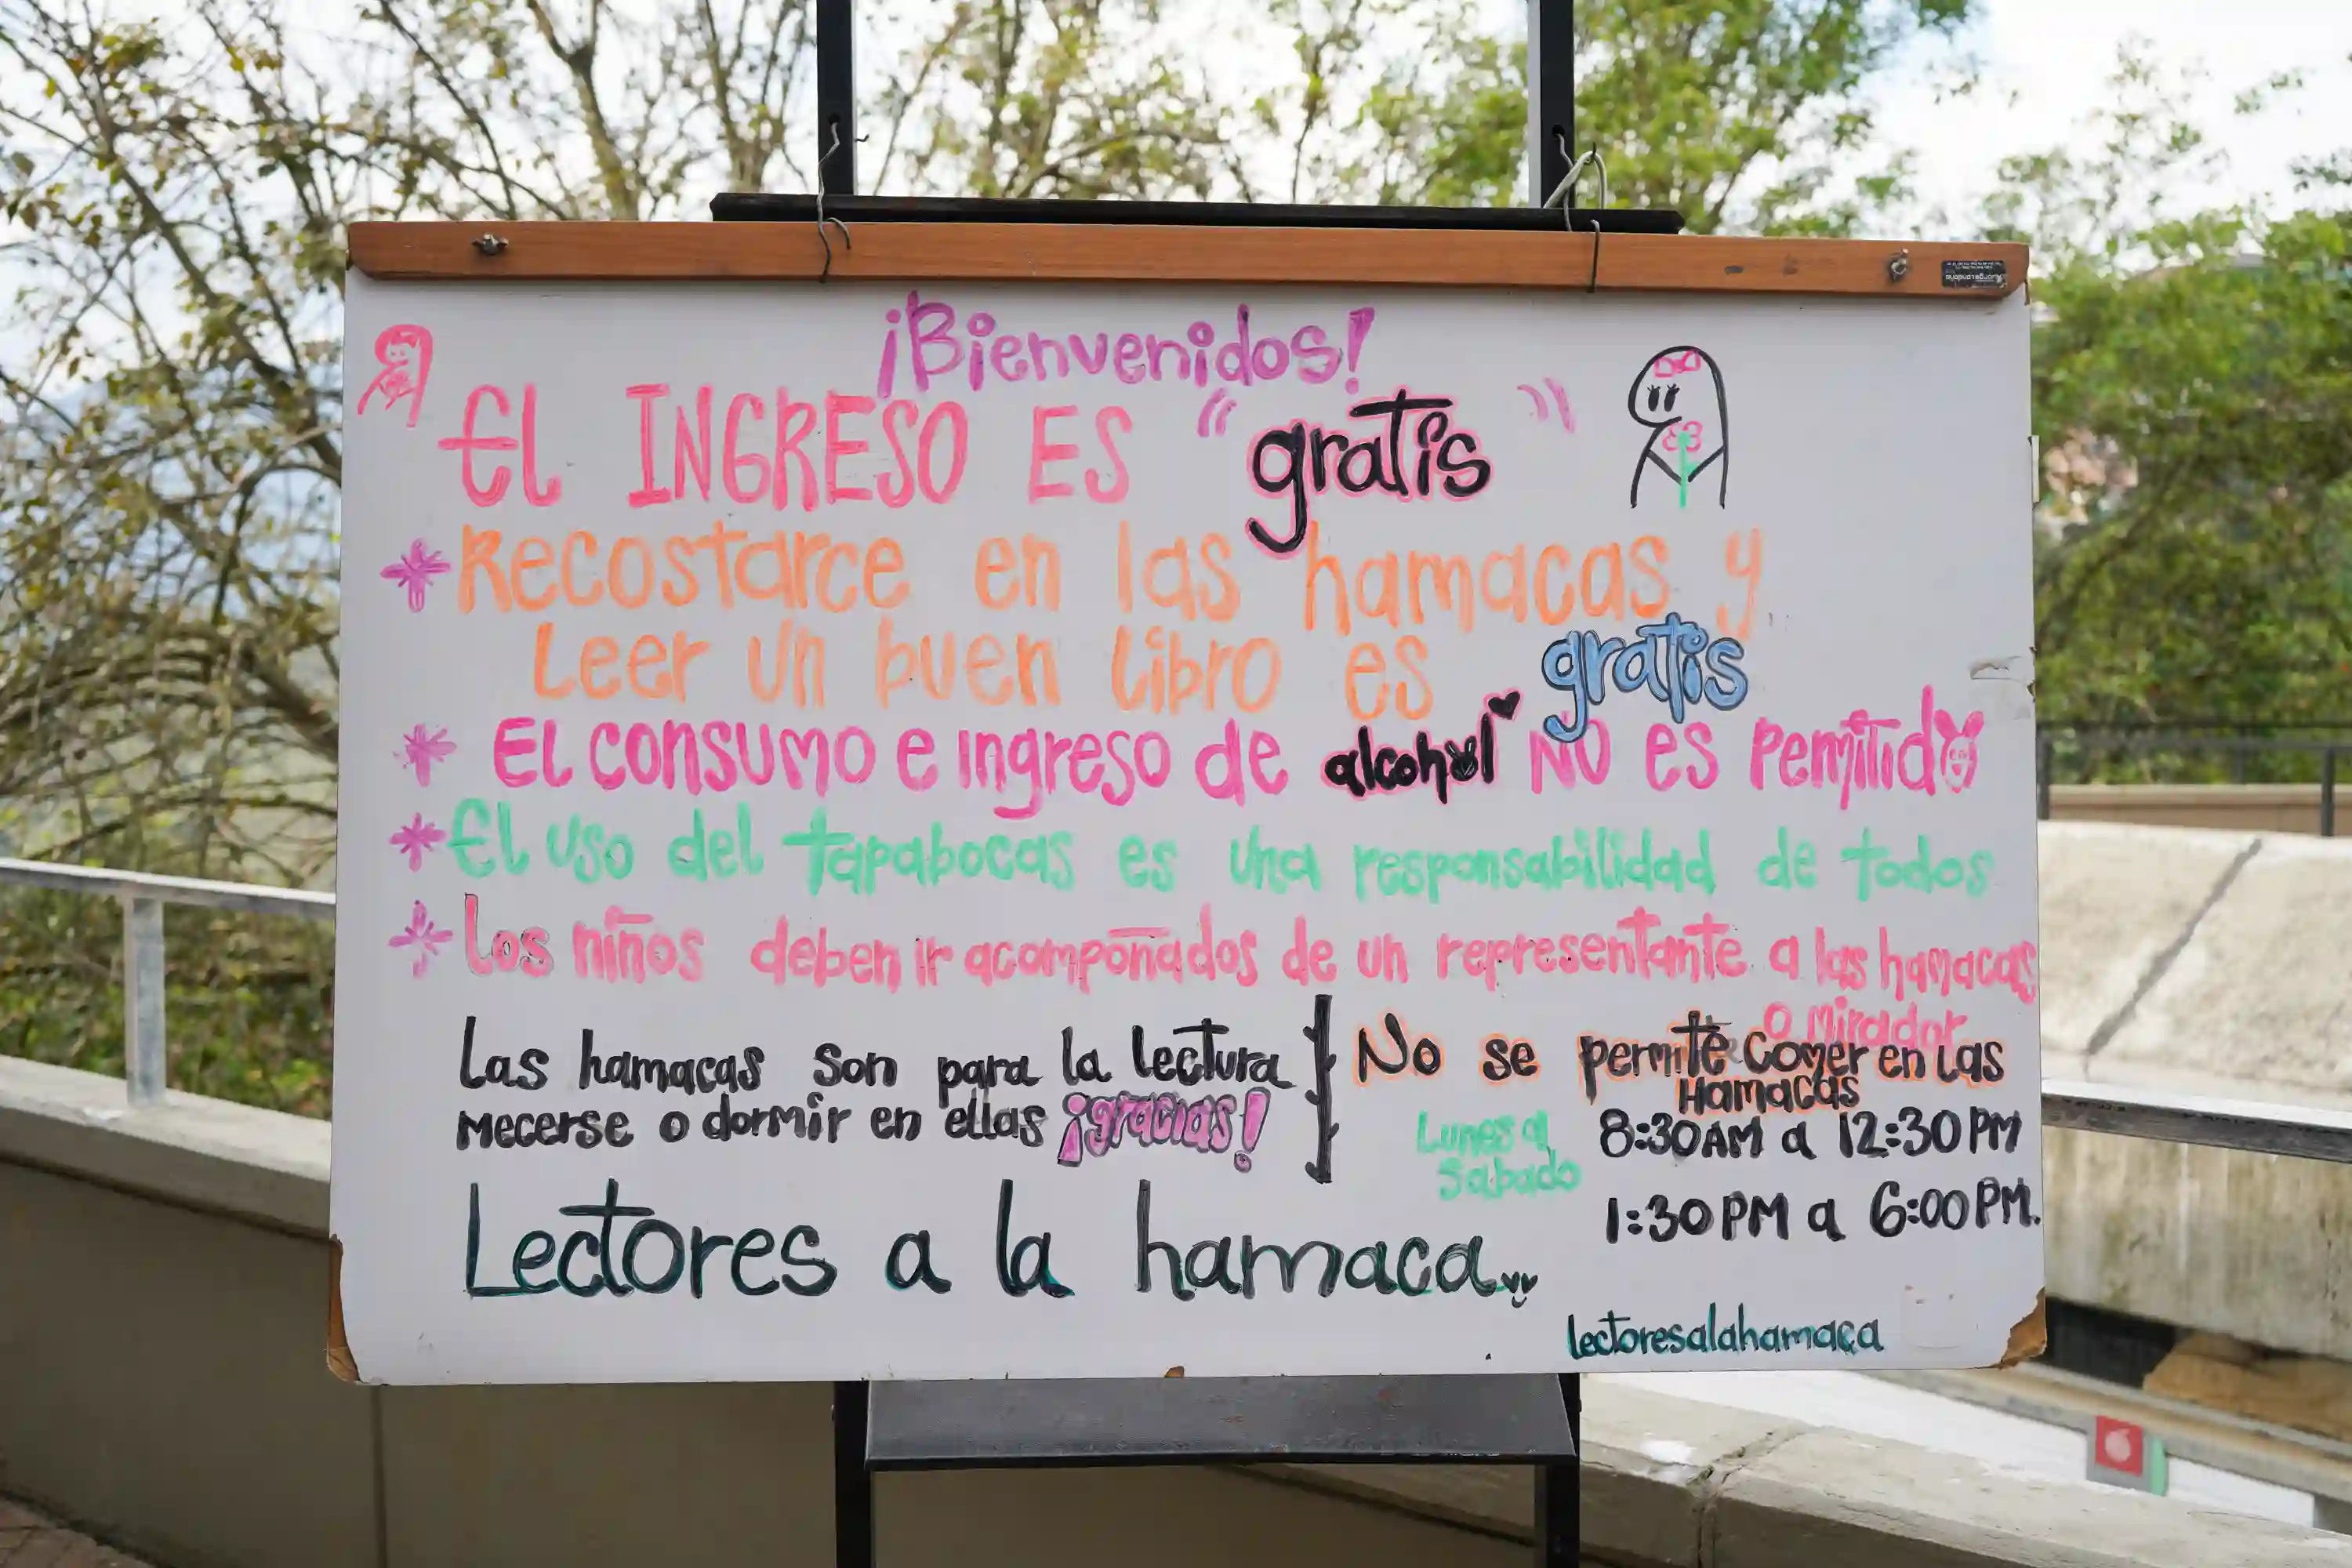 ¡Bienvenidos!
El INGRESO ES "gratis"
* Recostarce en las hamacas y
Leer un buen libro es gratis
* El consumo e ingreso de alcohol NO es permitido
* El uso del tapabocas es una responsabilidad de todos
* Los niños deben ir acompañados de un representante a las hamacas
o mirador
Las hamacas son para la lectura
mecerse o dormir en ellas ¡gracias!
No se permite comer en las
Hamacas
Lunes a
Sabado
8:30AM a 12:30PM
1:30PM a 6:00PM.
Lectores a la hamaca..
lectoresalahamaca